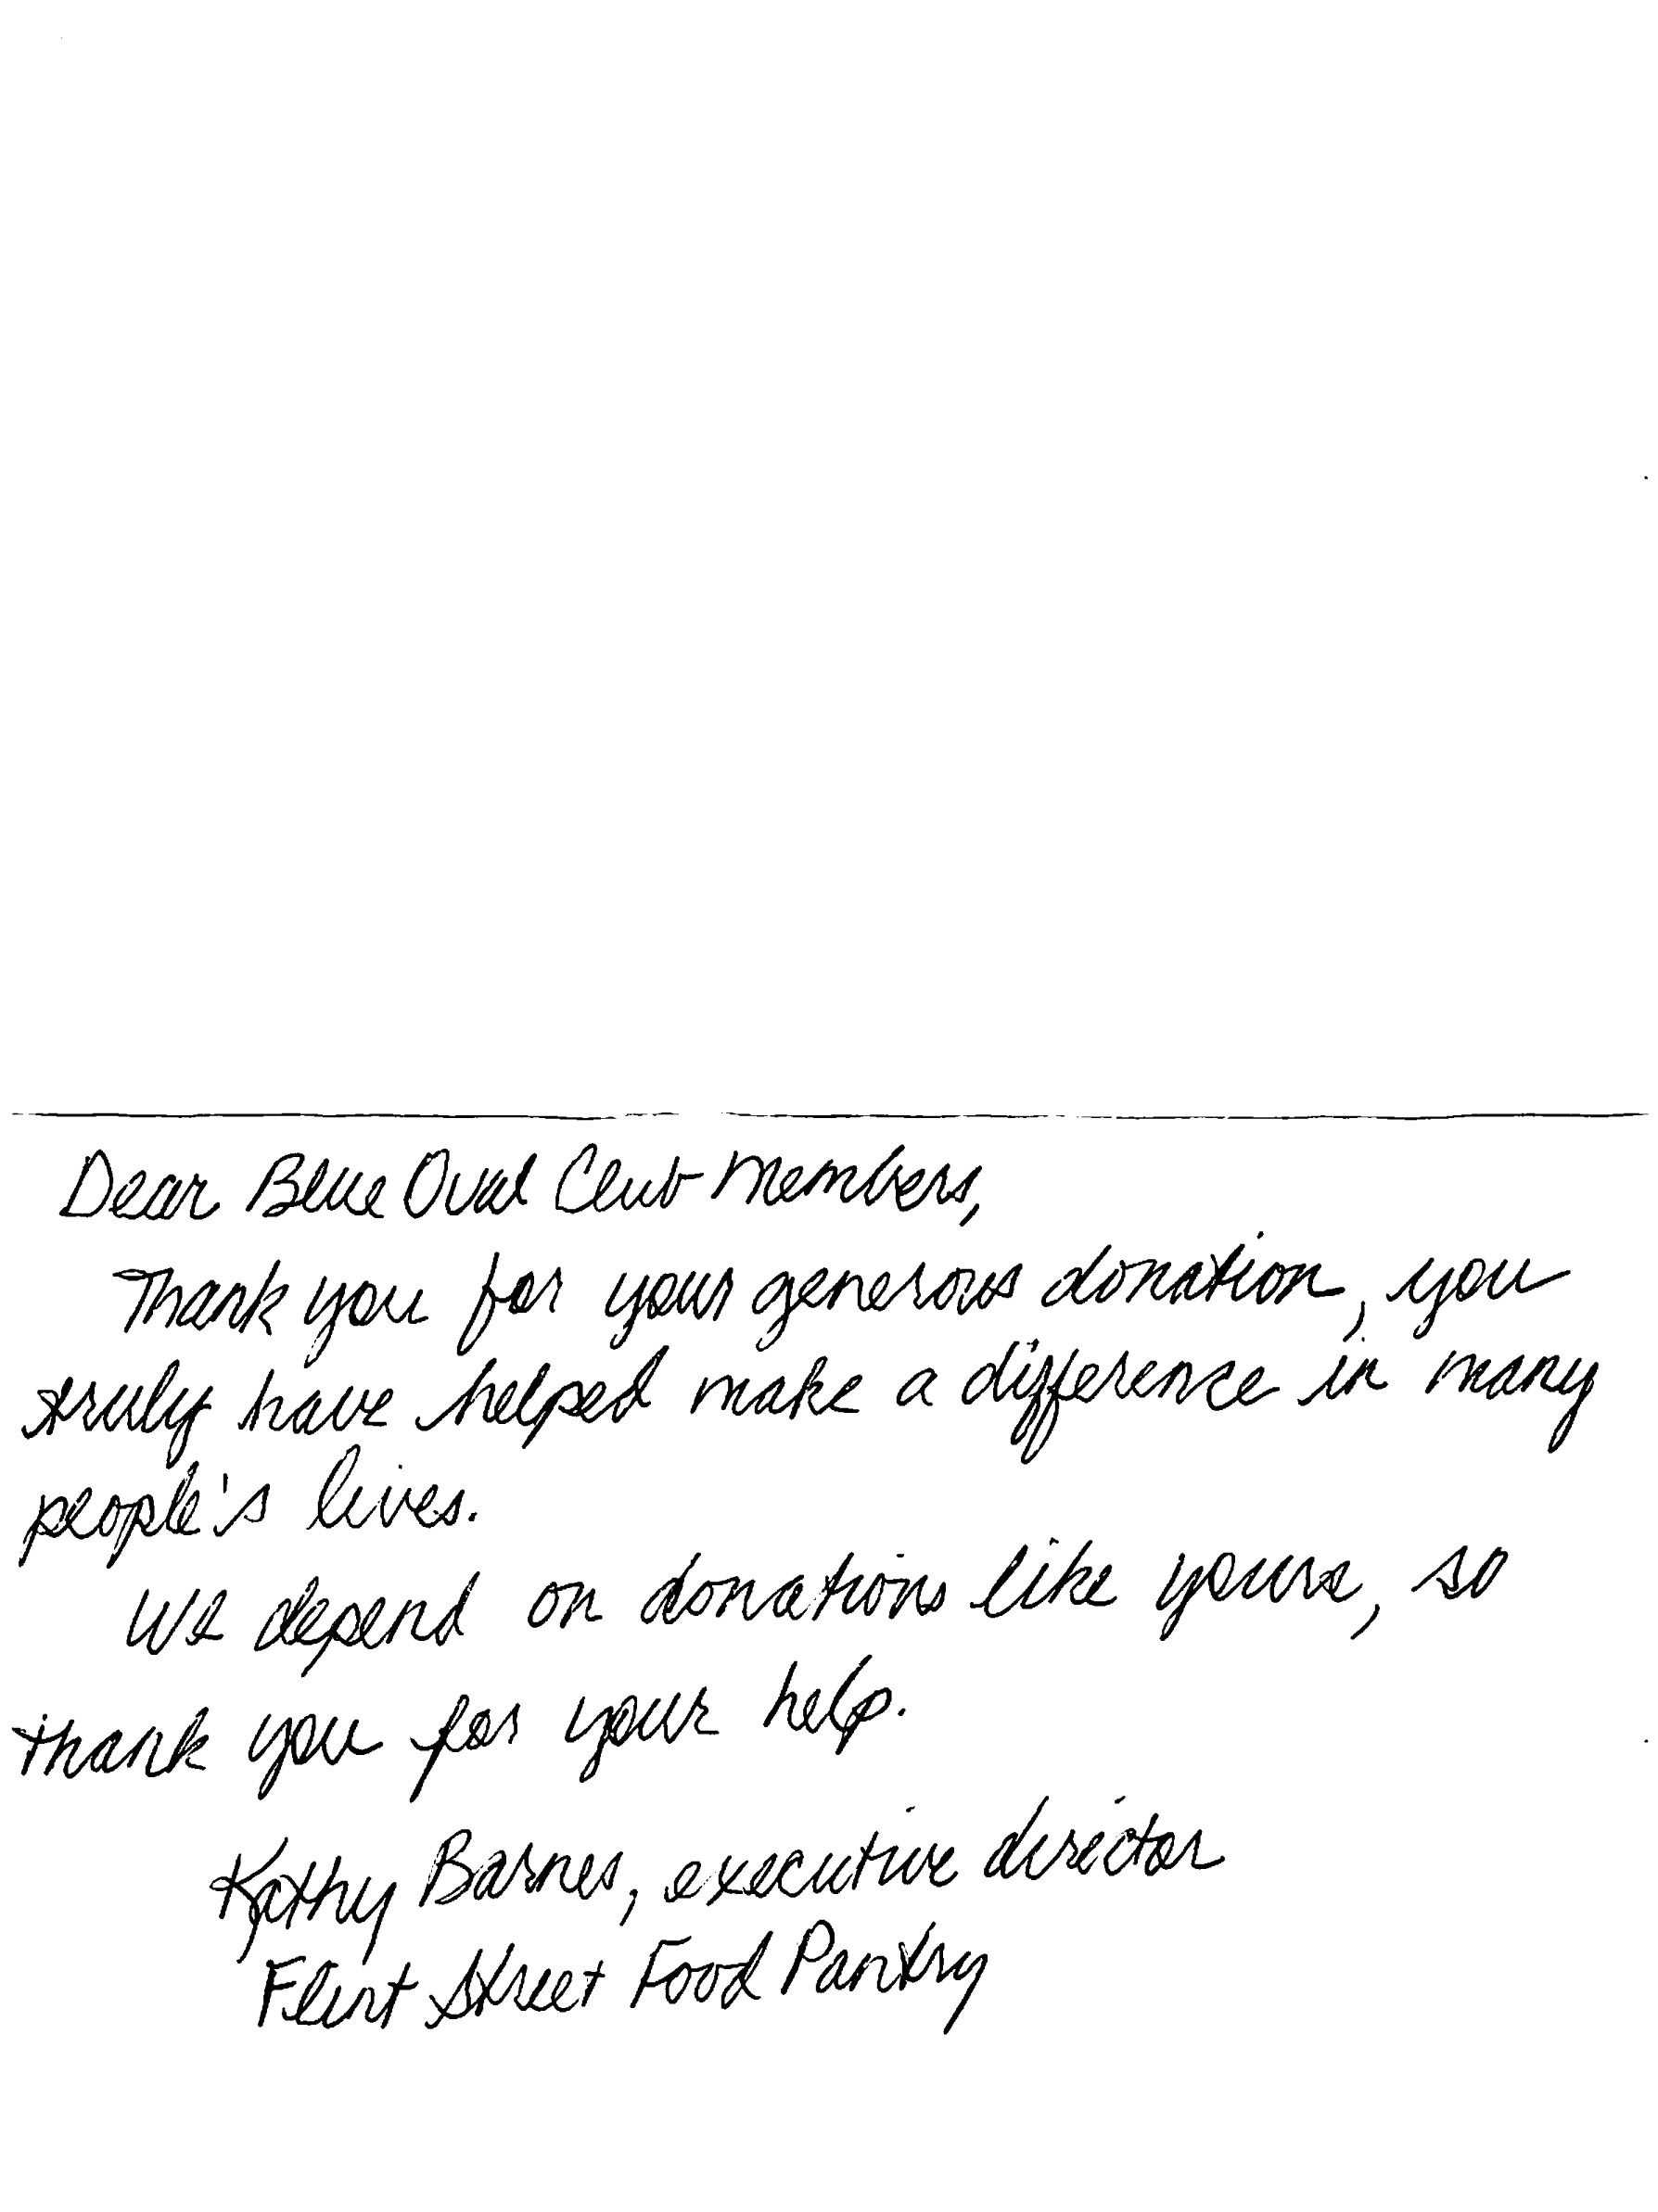 Dear Blue Oval Club Members,
Thank you for your generous donation, you
truly have helped make a difference in many
people's lives.
We depend on donations like yours, so
thank you for your help.
Kathy Barnes, executive director
Flint Street Food Pantry